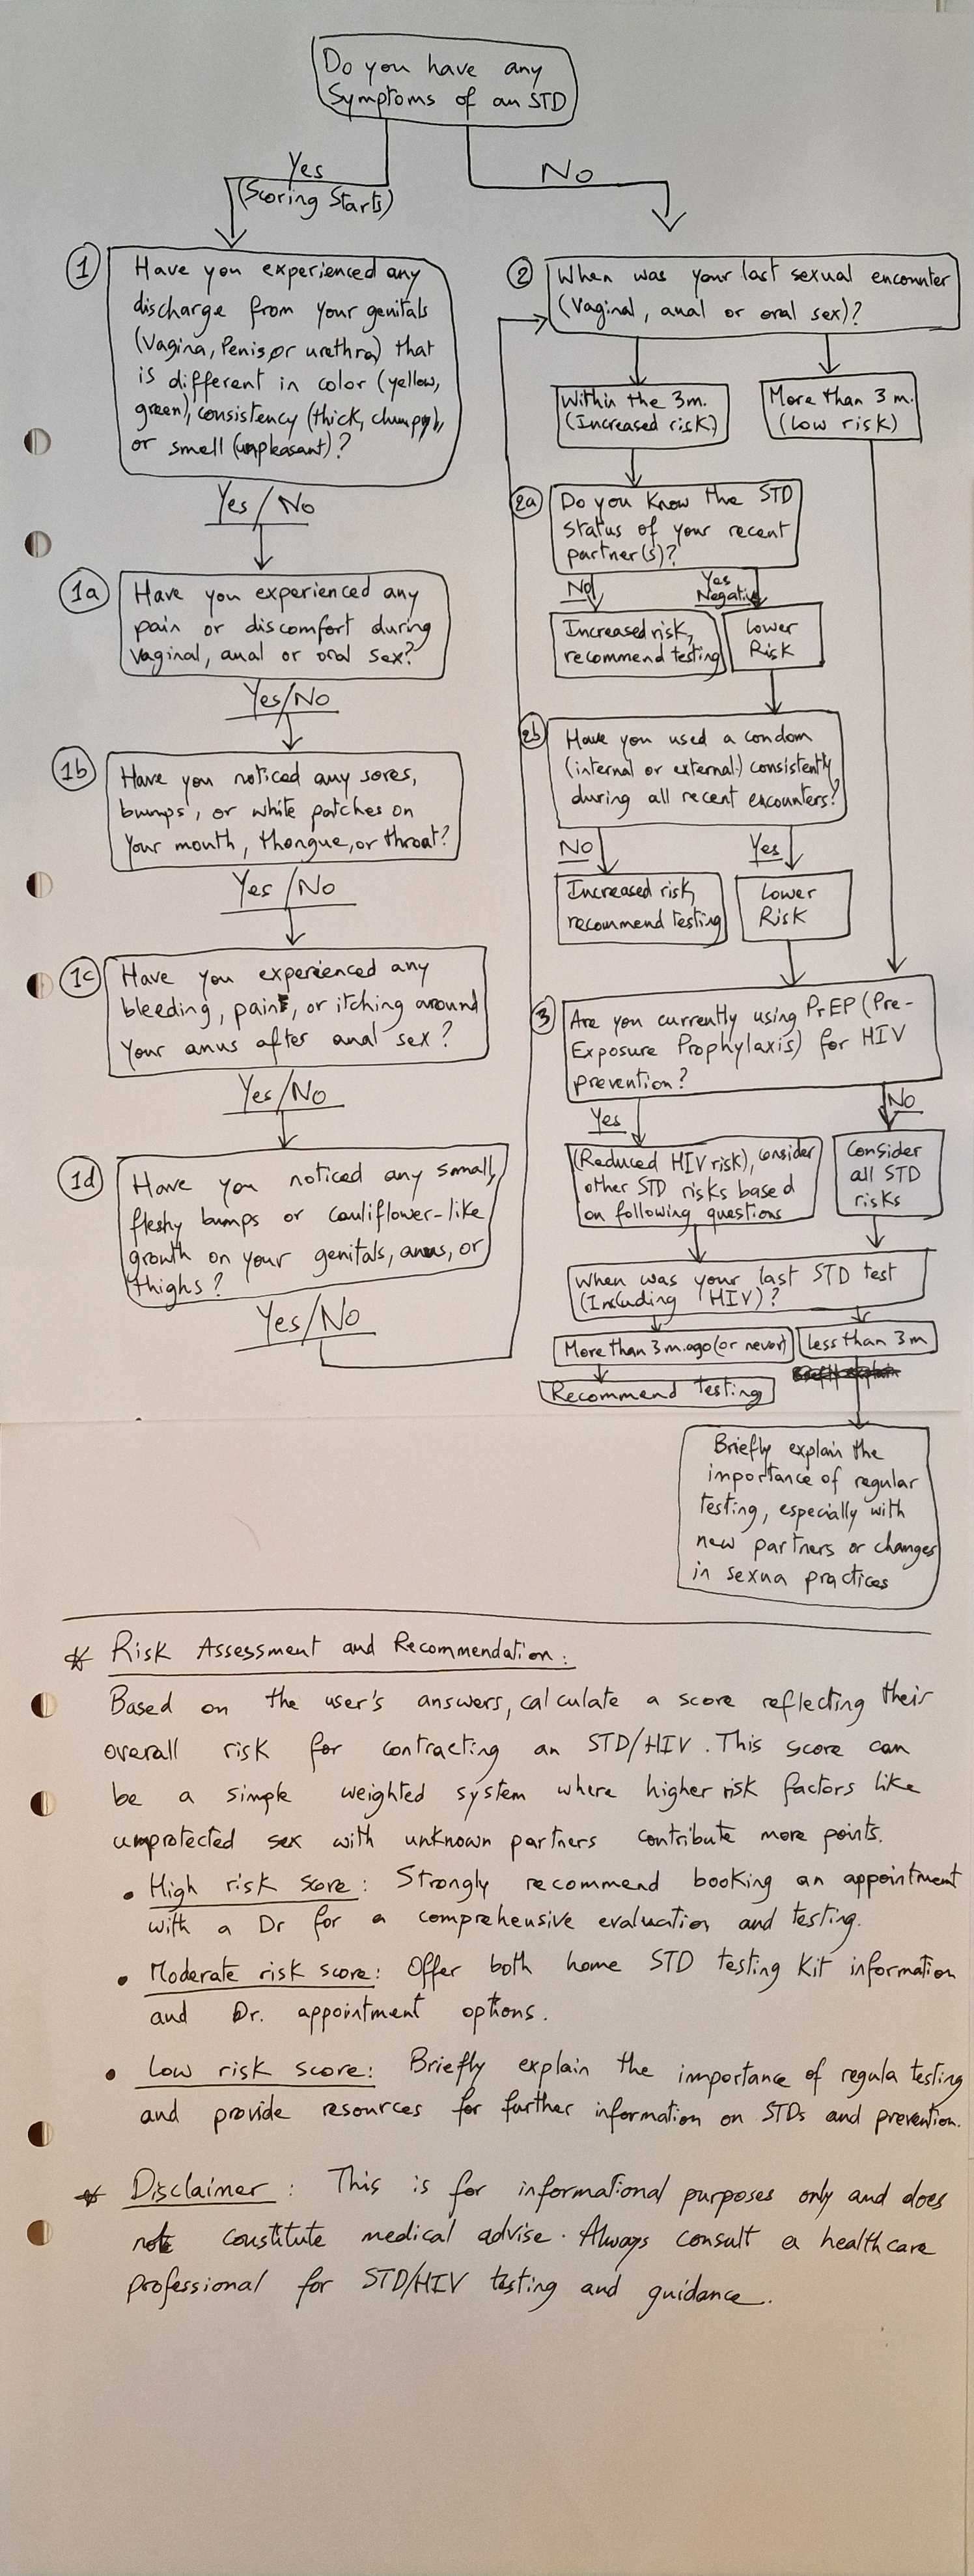 Do you have any
Symptoms of an STD
Yes
(Scoring Starts)
No
1
Have you experienced any
discharge from your genitals
(Vagina, Penis, or urethra) that
is different in color (yellow,
green), consistency (thick, chumpy),
or smell (unpleasant)?
Yes/No
1a
Have you experienced any
pain or discomfort during
Vaginal, anal or oral sex?
Yes/No
1b
Have you noticed any sores,
bumps, or white patches on
Your mouth, thongue, or throat?
Yes/No
1c
Have you experienced any
bleeding, pain, or itching around
Your anus after anal sex?
Yes/No
1d
Have you noticed any small,
fleshy bumps or cauliflower-like
growth on your genitals, anus, or
thighs?
Yes/No
2
When was your last sexual encounter
(Vaginal, anal or oral sex)?
Within the 3m.
(Increased risk)
More than 3 m.
(Low risk)
2a
Do you know the STD
status of your recent
partner(s)?
No
Yes
Negative
Increased risk,
recommend testing
Lower
Risk
2b
Have you used a condom
(internal or external) consistently
during all recent encounters?
No
Yes
Increased risk,
recommend testing
Lower
Risk
3
Are you currently using PrEP (Pre-
Exposure Prophylaxis) for HIV
prevention?
Yes
No
(Reduced HIV risk), consider
other STD risks based
on following questions
Consider
all STD
risks
When was your last STD test
(Including HIV)?
More than 3 m.ago (or never)
Less than 3 m
Recommend testing
Briefly explain the
importance of regular
testing, especially with
new partners or changes
in sexua practices
* Risk Assessment and Recommendation:
Based on the user's answers, calculate a score reflecting their
overall risk for contracting an STD/HIV. This score can
be a simple weighted system where higher risk factors like
unprotected sex with unknown partners contribute more points.
• High risk score: Strongly recommend booking an appointment
with a Dr for a comprehensive evaluation and testing.
• Moderate risk score: Offer both home STD testing Kit information
and Dr. appointment options.
• Low risk score: Briefly explain the importance of regula testing
and provide resources for further information on STDs and prevention.
* Disclaimer: This is for informational purposes only and does
not constitute medical advise. Always consult a healthcare
professional for STD/HIV testing and guidance.